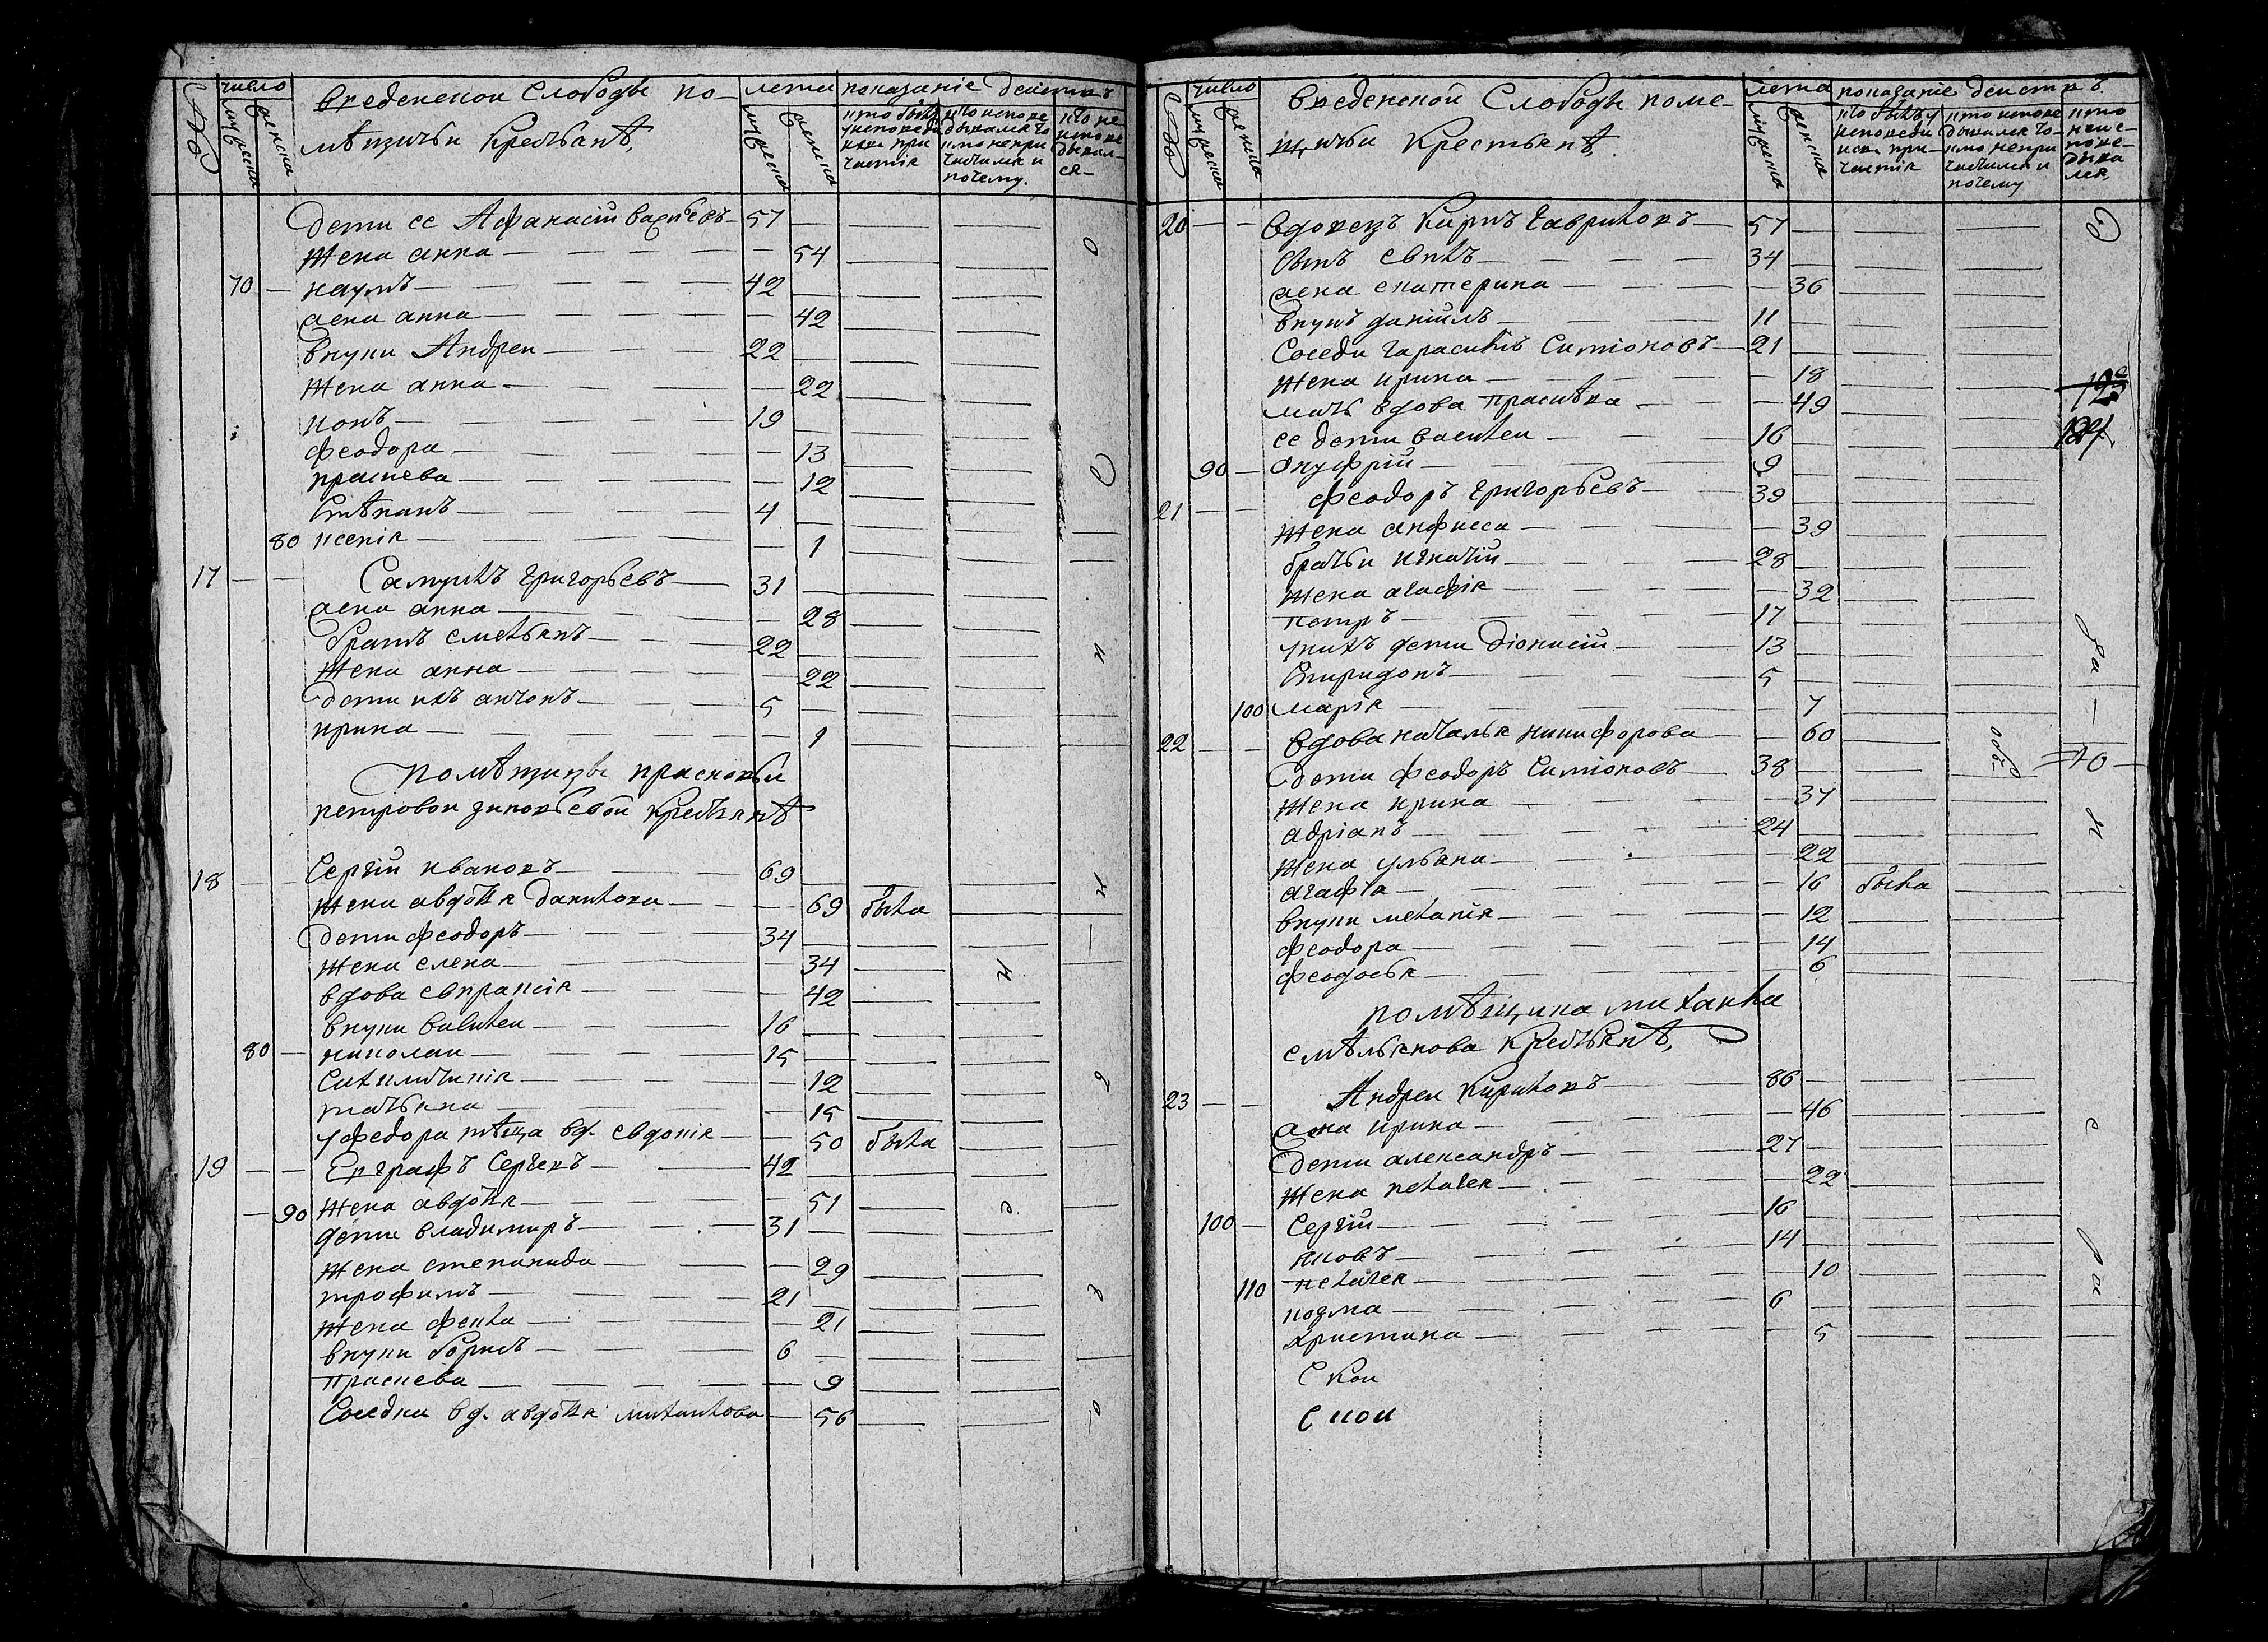 число
введенскои Слободы по—
лета
показание деиств
мѣщичьи Крестьянѣ,
мужеска
женска
кто былъ у исповеди и св. причастія
кто исповедывался токмо не причастился и почему.
кто не исповедывался—
дети ее Афанасіи васильевъ — 57
жена анна — 54
70 — наумъ — 42
жена анна — 42
внуки Андреи — 22
жена анна — 22
ионъ — 19
феодора — 13
праскева — 12
Стѣпанъ — 4
80 ксенія — 1
17 — — Самуилъ григорьевъ — 31
жена анна — 28
братъ емельянъ — 22
жена анна — 22
дети ихъ антонъ — 5
ирина — 1
помѣщицы прасковьи
петровои зиновьевои крестьянѣ
18 — — Сергіи ивановъ — 69
жена авдотья данилова — 69 была
дети феодоръ — 34
жена елена — 34
вдова евпраксія — 42
внуки василеи — 16
80 — николаи — 15
12
татьяна — 15
у федора тѣща вд. евдокія — 50 была
19 — — Евграфъ Сергеевъ — 42
— 90 жена авдотья — 51
дети владимиръ — 31
жена степанида — 29
трофимъ — 21
жена фекла — 21
внуки борисъ — 6
праскева — 9
Соседка вд. авдотья михаилова — 56
число
введенскои Слободы поме—
лета
показаніе деиствъ.
щичьи Крестьянѣ,
мужеска
женска
кто былъ у исповеди и св. причастія
кто исповедывался токмо не причастился и почему
кто неисповедывался,
20 — — вдовецъ Кирилъ гавриловъ — 57
сынъ — 34
жена екатерина — 36
внукъ даніилъ — 11
Соседи гарасимъ Симіоновъ — 21
жена ирина — 18
мать вдова праскѣва — 49
ее дети василеи — 16
90 — Онуфріи — 9
21 — — феодоръ григорьевъ — 39
жена анфиса — 39
братьи игнатіи — 28
жена агафія — 32
петръ — 17
у нихъ дети Діонисіи — 13
Спиридонъ — 5
100 марія — 7
22 — — вдова наталья никифорова — 60
дети феодоръ Симіоновъ — 38
жена ирина — 37
адріанъ — 24
жена ульяна — 22
агафія — 16 была
внуки меланія — 12
феодора — 14
феодосья — 6
помѣщика михаила
емѣльянова крестьянѣ,
23 — — Андреи Кириловъ — 86
жена ирина — 46
дети александръ — 27
жена пелагея — 22
100 — Сергіи — 16
яковъ — 14
110 пелагея — 10
козма — 6
христина — 5